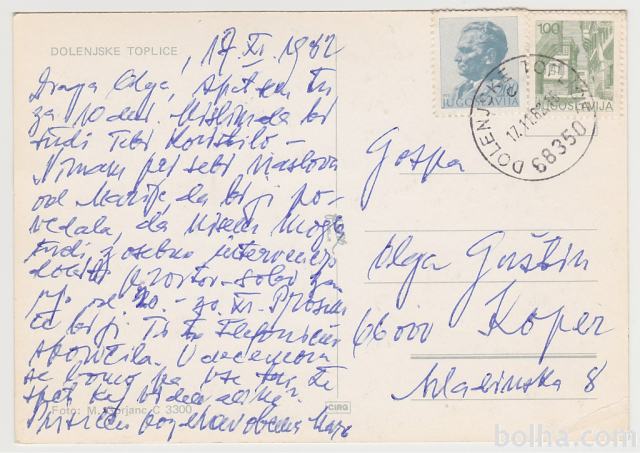 DOLENJSKE TOPLICE
, 17. XI. 1982
Draga Olga, spet sem tu
za 10 dni. Mislim, da bi
tudi Tebi koristilo –
Nimam pri sebi naslova
od Marije, da bi ji po-
vedala, da nisem mogla
tudi z osebno intervencijo
dobiti prostor – sobo za
njo od 20. – 30. XI. Prosim
če bi ji Ti to telefonično
sporočila. V decembru
se bomo pa vse tri že
spet kaj
Prisrčen pozdrav obema
Foto: M. Gorjanc C 3300
CIRG
JUGOSLAVIJA
100
JUGOSLAVIJA
DOLENJSKE
17.11.82
68350
Gospa
Olga Guštin
66000 Koper
Mladinska 8
bolha.com